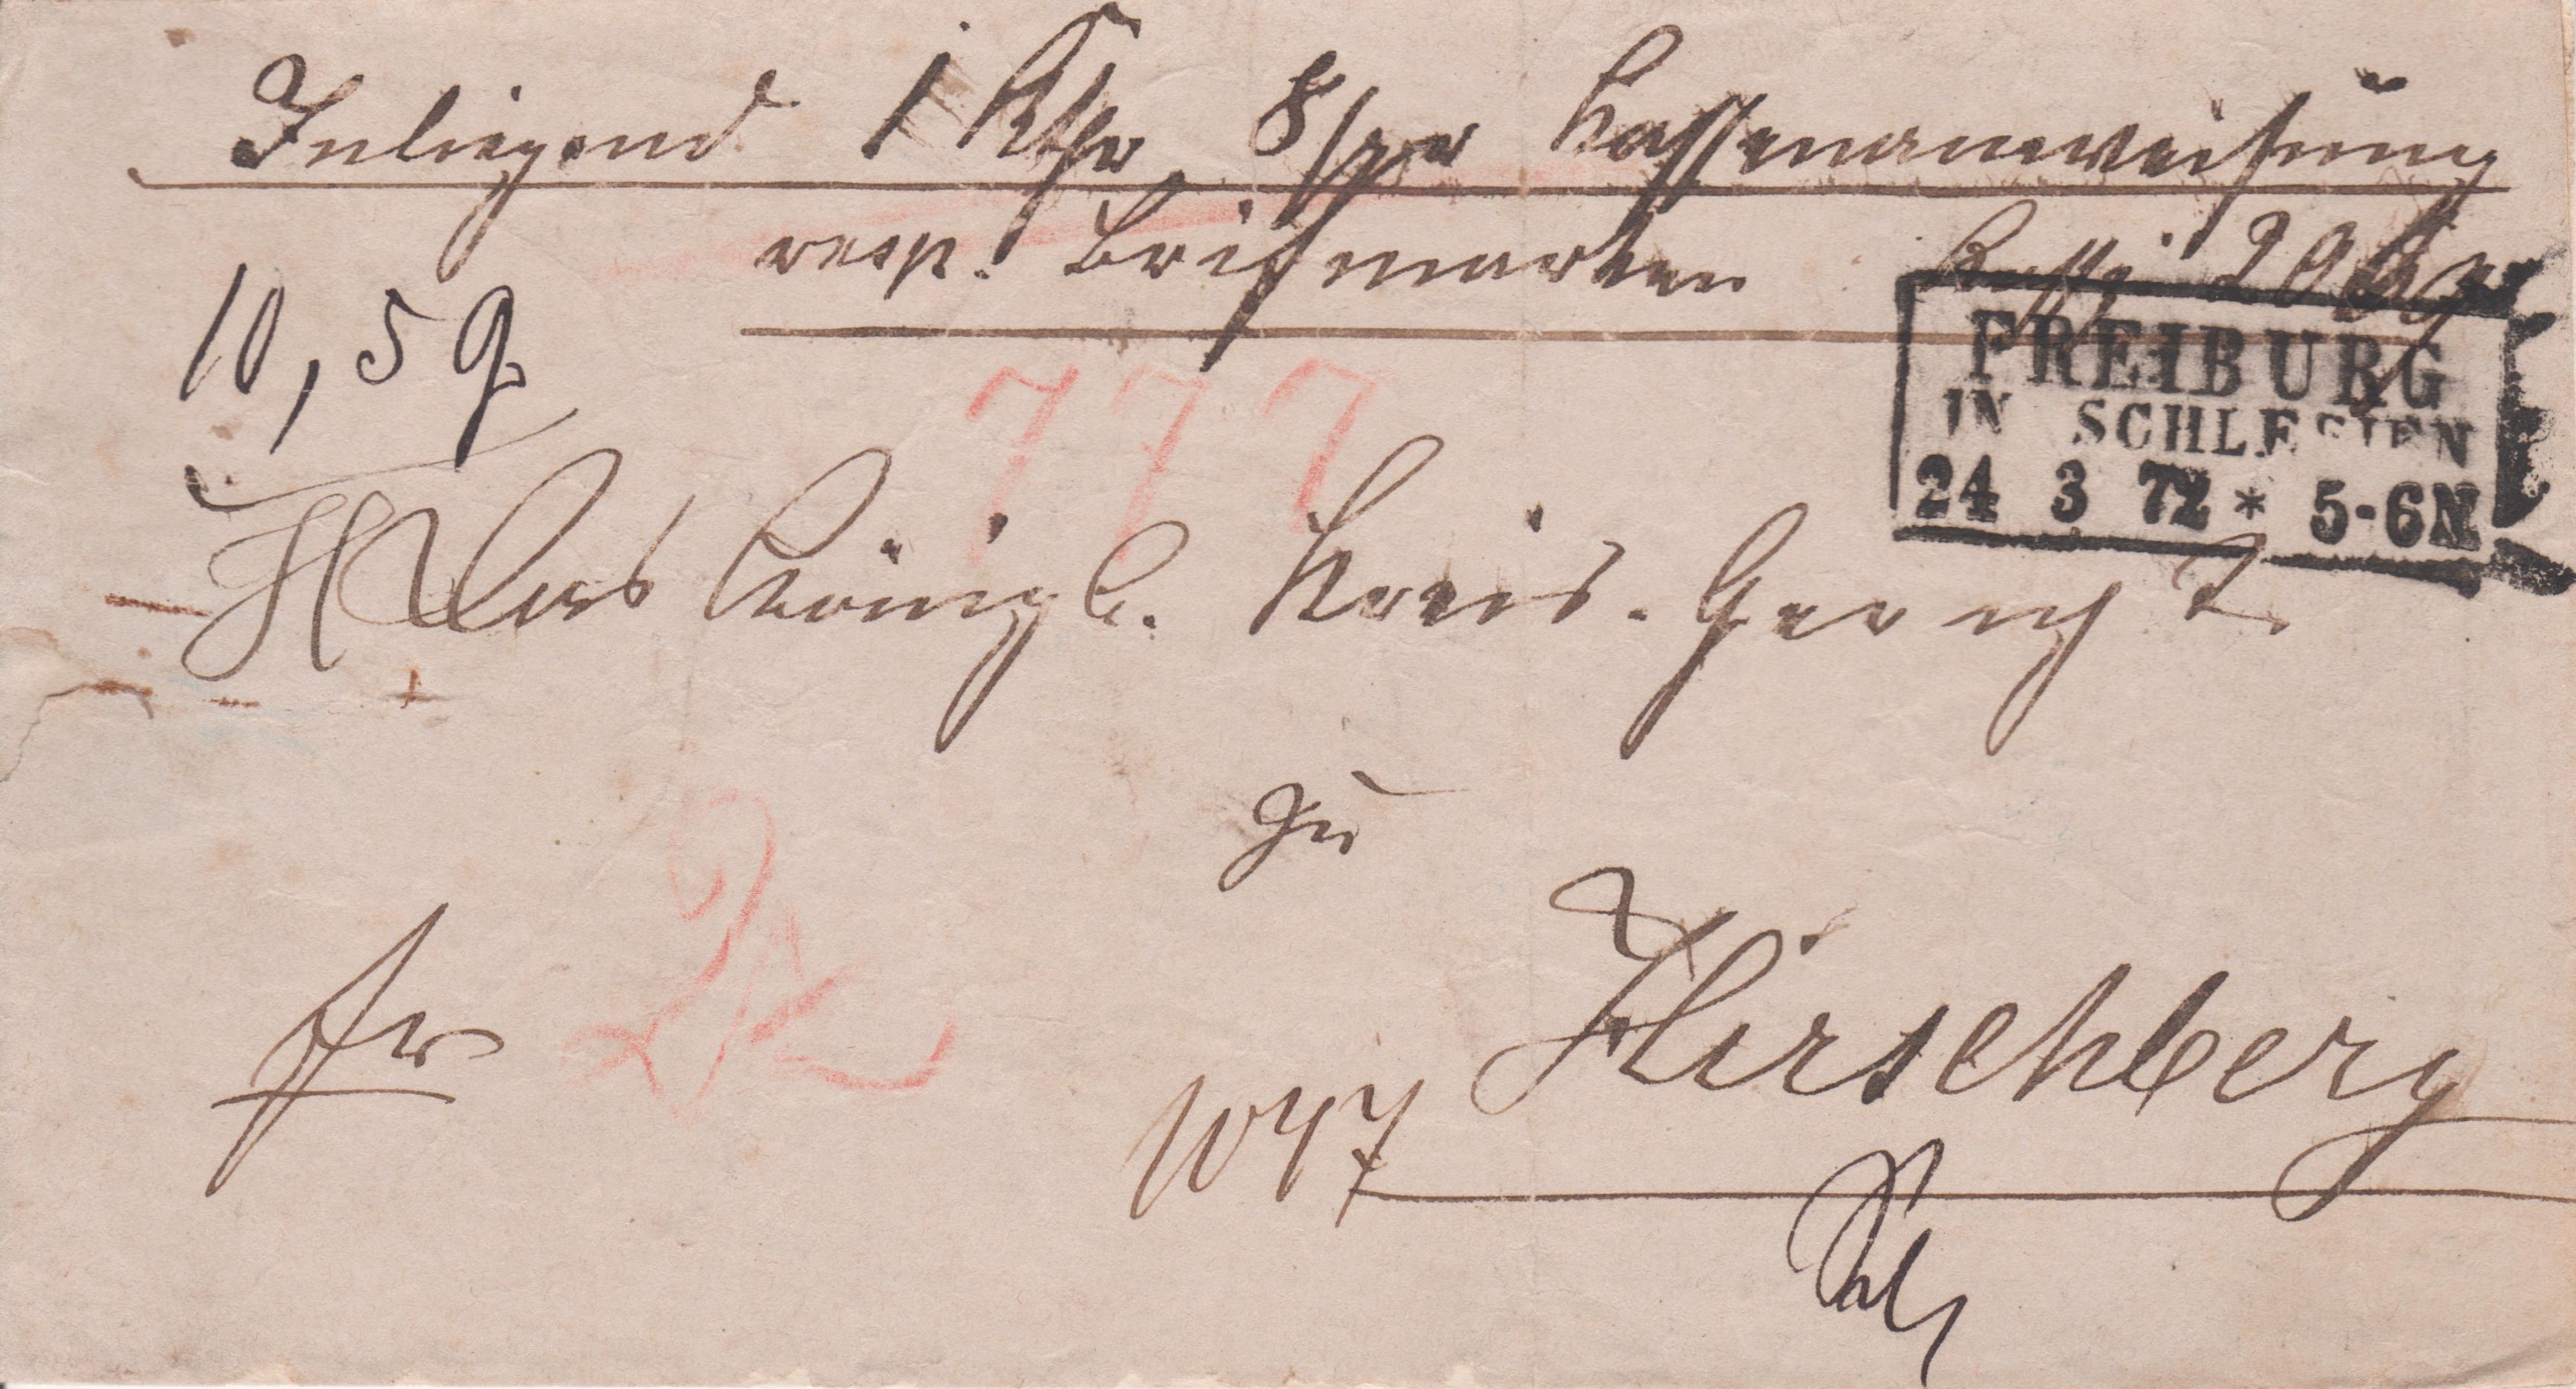 Inliegend 1 Rthr 8 sgr Kassenanweisung
resp. Briefmarken
10,5 g
777
FREIBURG
IN SCHLESIEN
24 3 72 * 5-6N
Das Königl. Kreis-Gericht
zu
Hirschberg
fr